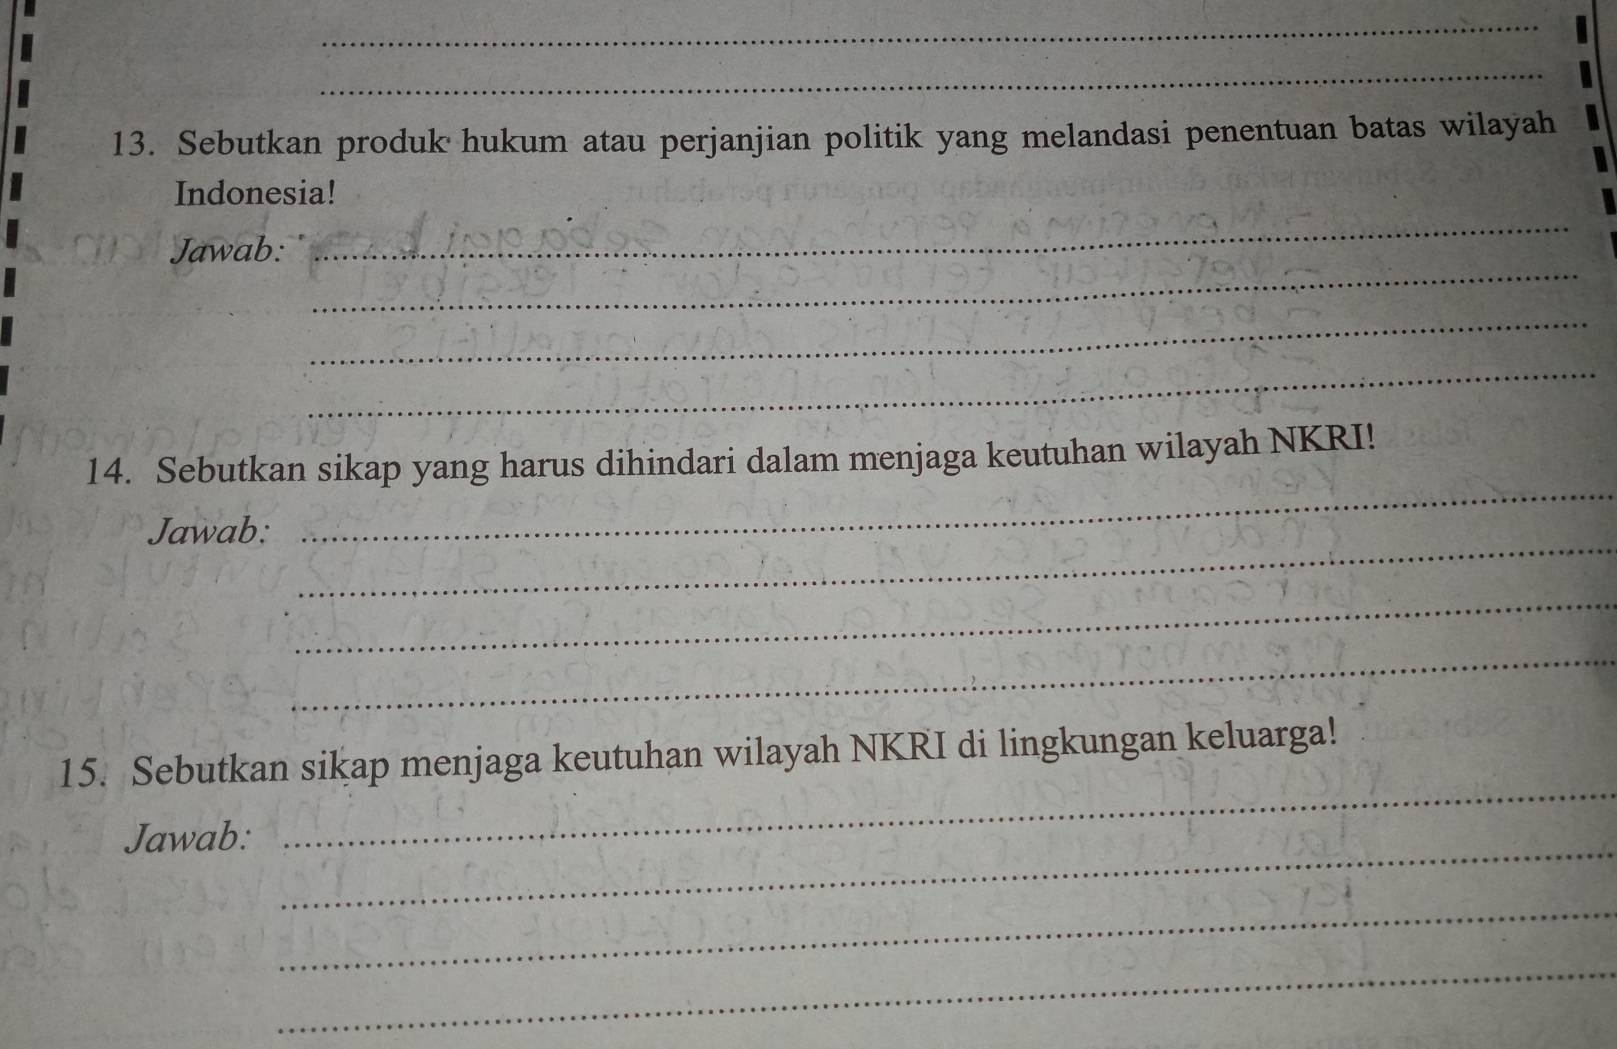 13. Sebutkan produk hukum atau perjanjian politik yang melandasi penentuan batas wilayah
Indonesia!
Jawab: ....................
14. Sebutkan sikap yang harus dihindari dalam menjaga keutuhan wilayah NKRI!
Jawab: ....................
15. Sebutkan sikap menjaga keutuhan wilayah NKRI di lingkungan keluarga!
Jawab: ....................